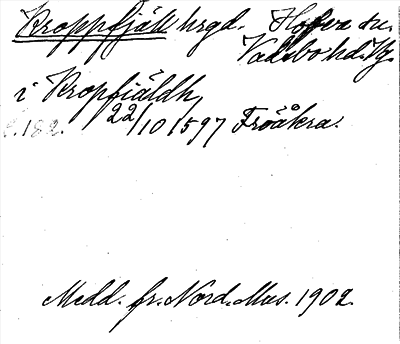 Kroppfjäll hrgd. Hofva sn.
Vadsbo hd. Vg.
i Kropfiäldh,
22/10 1597 Fröåkra.
Medd. fr. Nord. Mus. 1902.